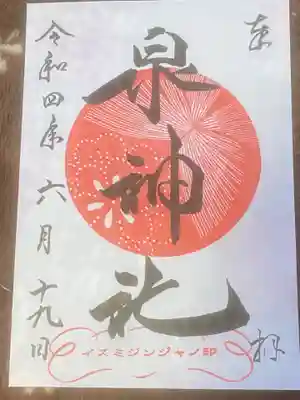 奉拝
泉神社
令和四年六月十九日
イズミジンジャノ印